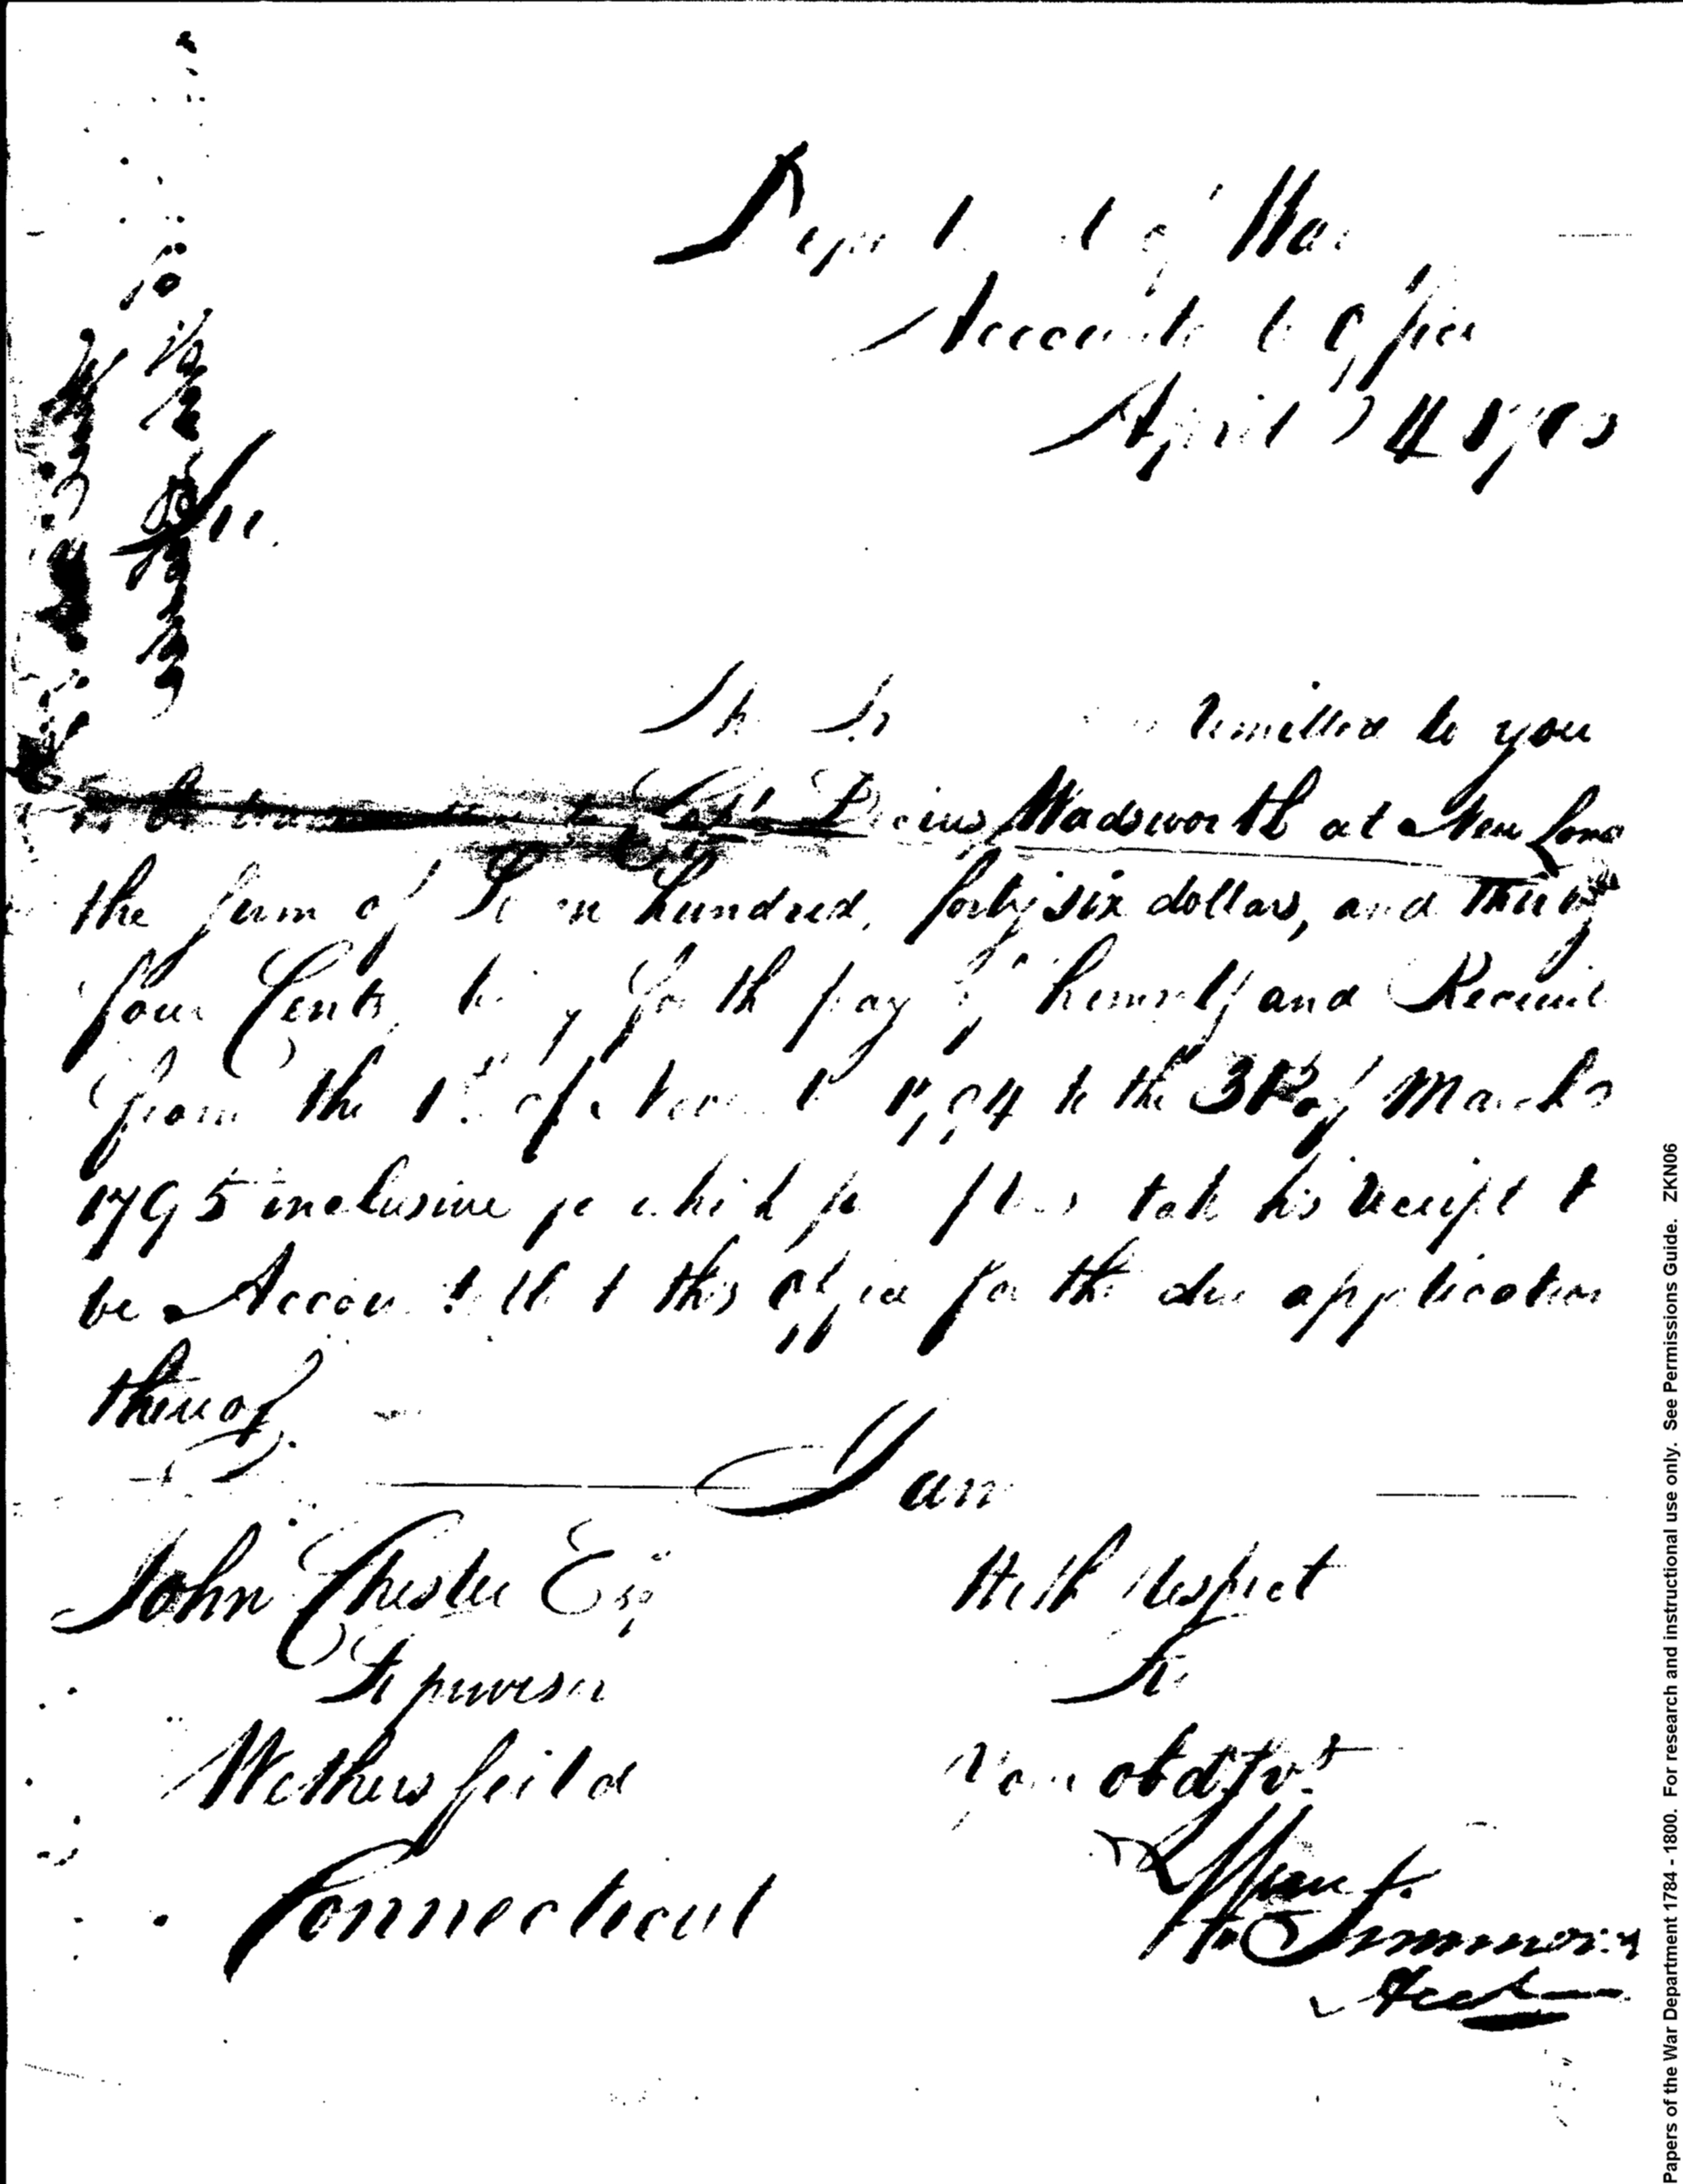 Department of War
Accountants Office
April 24 1795
Sir.
The Treasurer remitted to you
to be transmitted to Capt. Decius Wadsworth at New Lond
the sum of hundred, forty six dollars, and thirty
four Cents, being for the pay of himself and Recruits
from the 1st of Novr 1794 to the 31st of March
1795 inclusive for which please take his receipt to
be Accountable to this Office for the due application
thereof.
I am
John Chester Esqr
With respect
Supervisor
Sir
Wethersfeild
Your obdt Svt
Connecticut
Simmons
Acct
Papers of the War Department 1784 - 1800. For research and instructional use only. See Permissions Guide. ZKN06